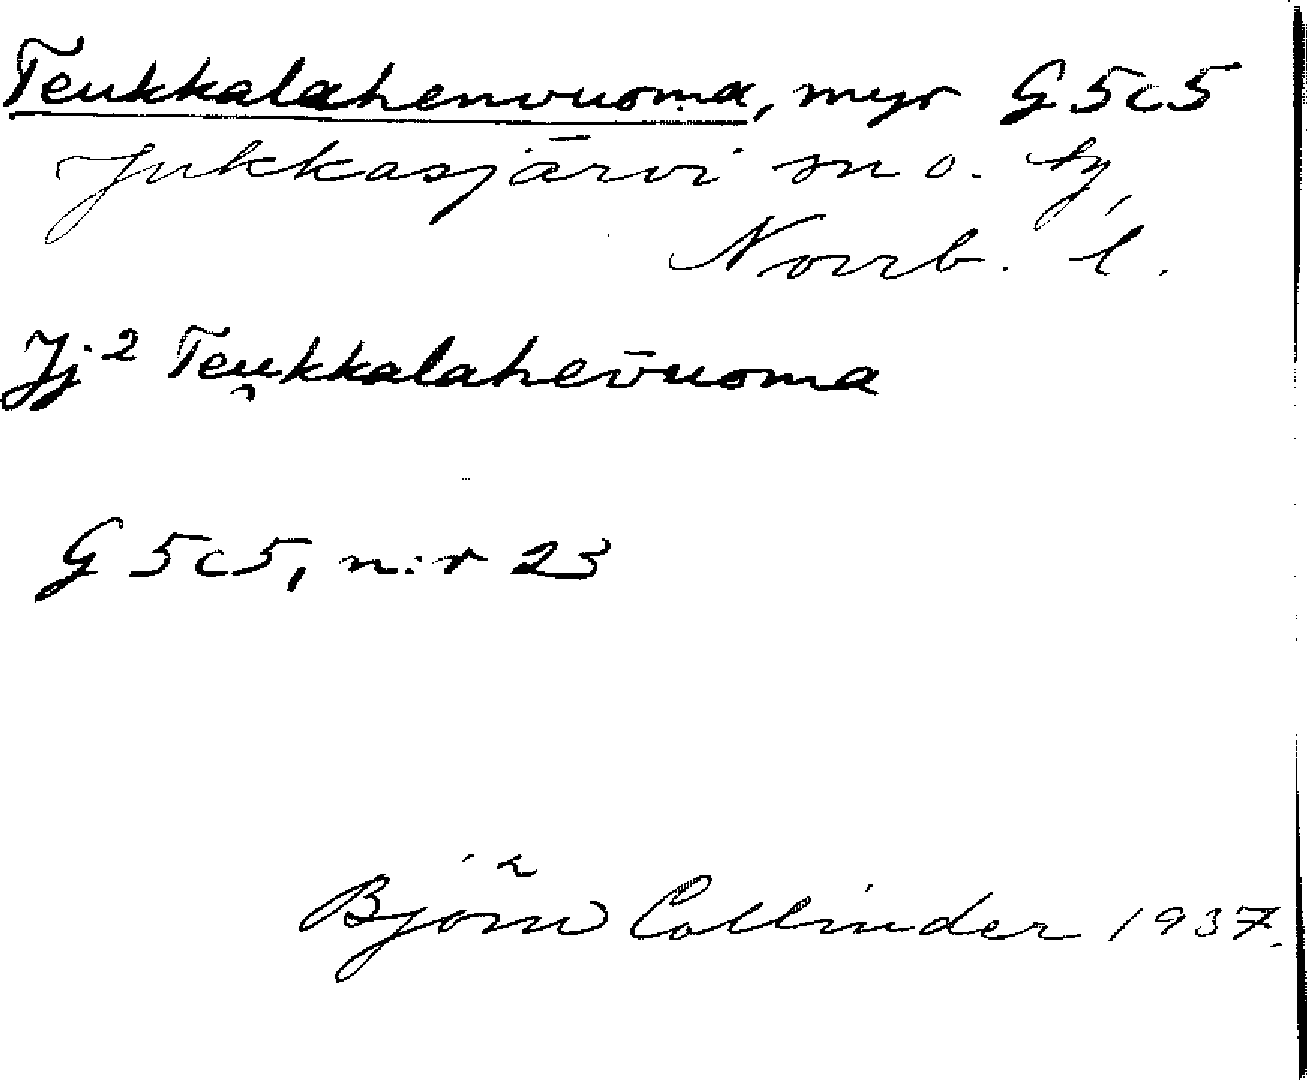 Teukkalahenvuoma, myr G 5c5
Jukkasjärvi sn o. tg,
Norrb. l.
Jj² Teu̯kkalahēvuoma
G 5c5, n:r 23
Björn Collinder 1937.